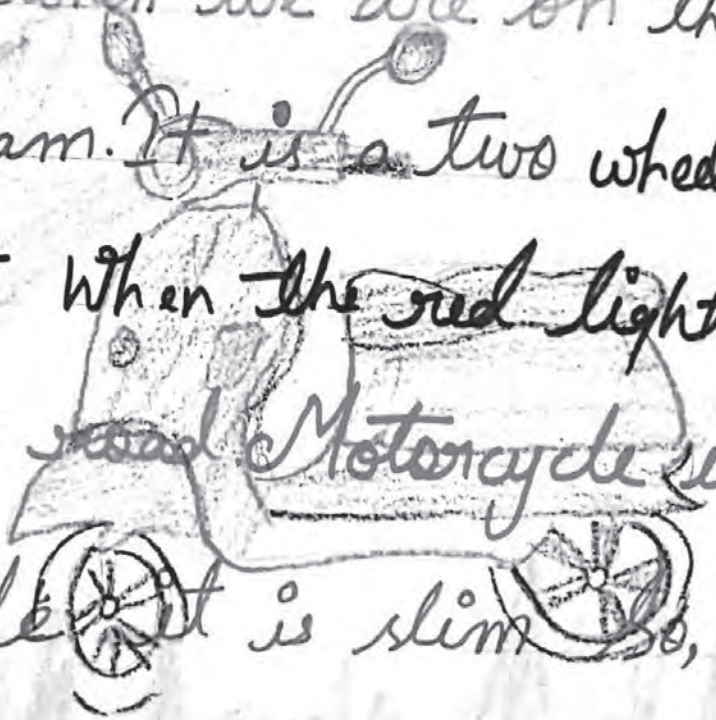 we are on th
am. It is a two wheel
When the red light
road. Motorcycle i
le it is slim So,